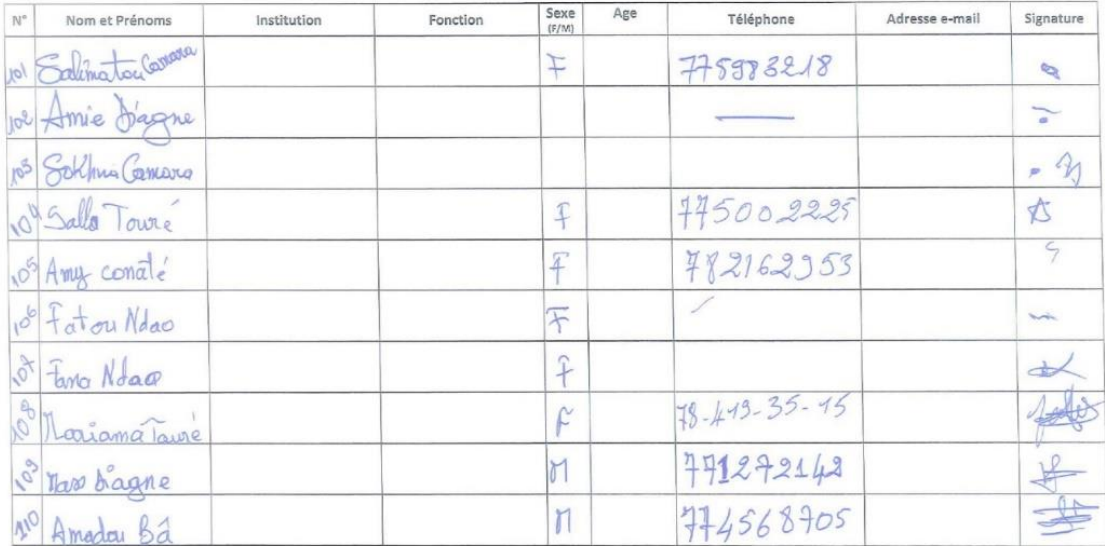 N° Nom et Prénoms Institution Fonction Sexe (F/M) Age Téléphone Adresse e-mail Signature
101 Salimatou Camara F 775983218
102 Amie Diagne —
103 Sokhna Camara
104 Salla Touré F 775002225
105 Amy conaté F 782162953
106 Fatou Ndao F
107 Fana Ndao F
108 Mariama Touré F 78-419-35-15
109 Mass Diagne M 771272142
110 Amadou Bâ M 774568705